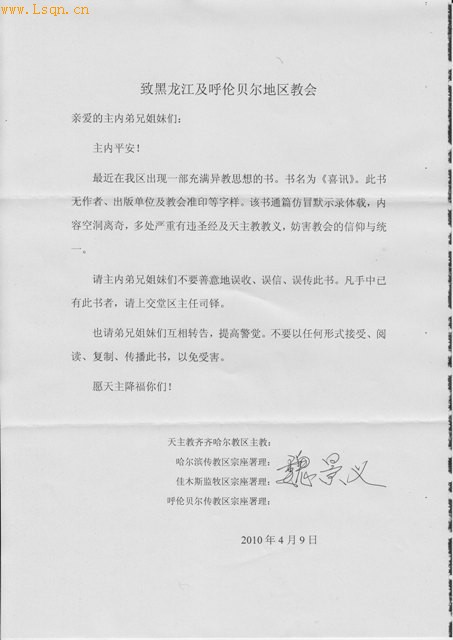 www.Lsqn.cn
致黑龙江及呼伦贝尔地区教会
亲爱的主内弟兄姐妹们：
主内平安！
最近在我区出现一部充满异教思想的书。书名为《喜讯》。此书
无作者、出版单位及教会准印等字样。该书通篇仿冒默示录体载，内
容空洞离奇，多处严重有违圣经及天主教教义，妨害教会的信仰与统
一。
请主内弟兄姐妹们不要善意地误收、误信、误传此书。凡手中已
有此书者，请上交堂区主任司铎。
也请弟兄姐妹们互相转告，提高警觉。不要以任何形式接受、阅
读、复制、传播此书，以免受害。
愿天主降福你们！
天主教齐齐哈尔教区主教：
哈尔滨传教区宗座署理：
佳木斯监牧区宗座署理：
呼伦贝尔传教区宗座署理：
魏景义
2010 年 4 月 9 日